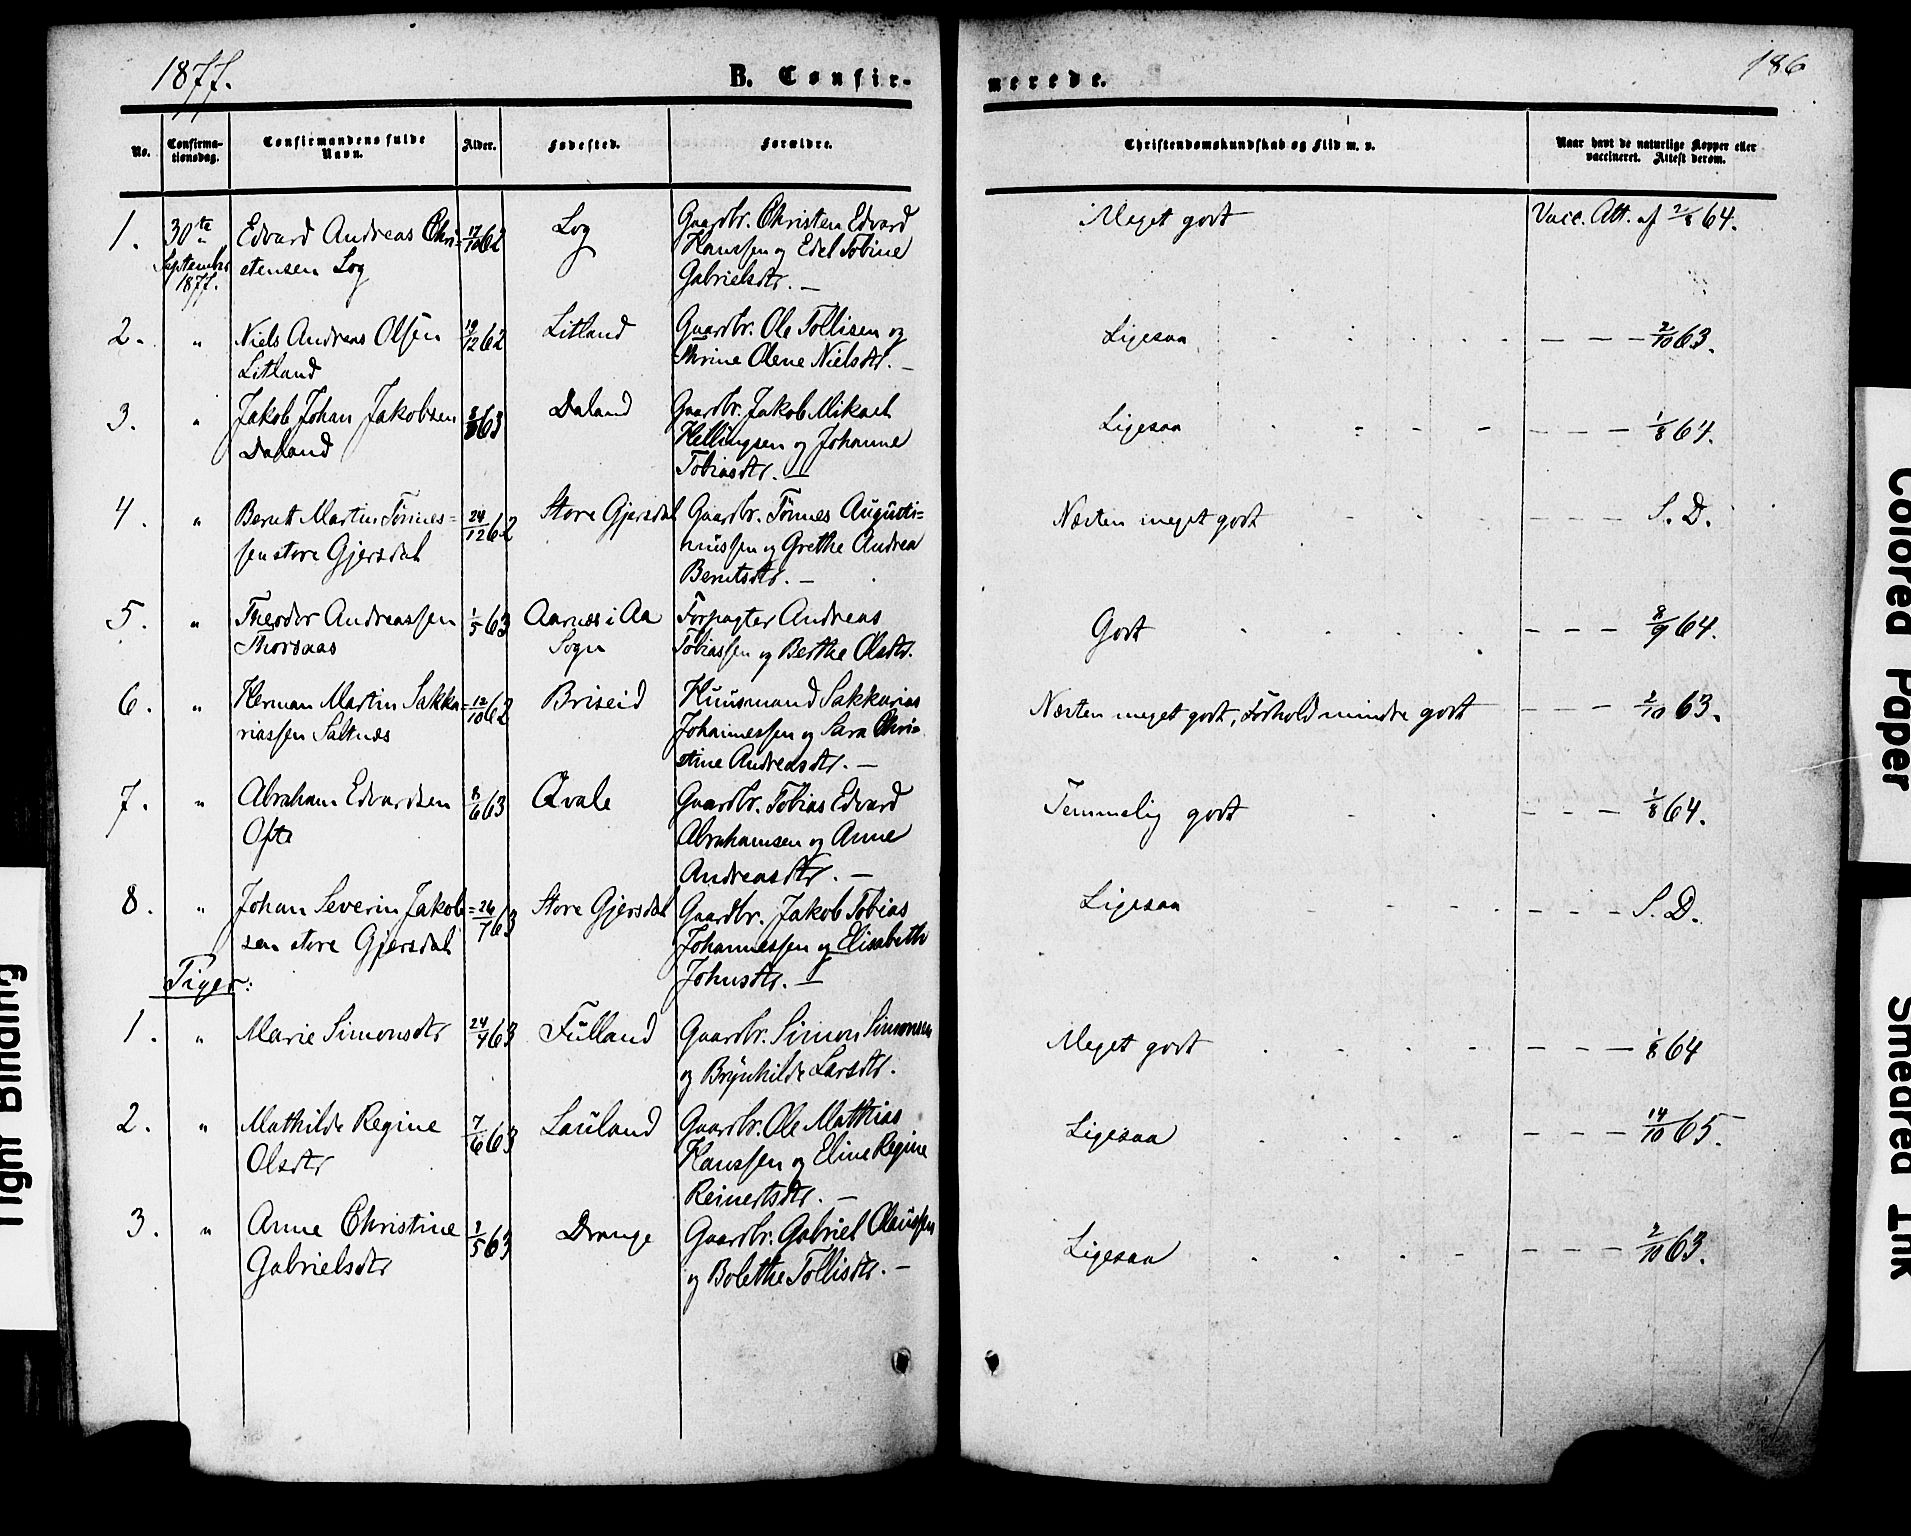 1877. B. Confirmerede. 186
No. Confirmationsdag. Confirmandens fulde Navn. Alder. Fødested. Forældre. Christendomskundskab og Flid m. v. Naar havt de naturlige Kopper eller vaccineret. Attest derom.
1. 30te Edvard Andreas Chri- 17/10 62 Log Gaardbr. Christen Edvard Meget godt Vacc. Att. af 2/8 64.
September stensen Log Hanssen og Edel Tobine
1877. Gabrielsdtr. —
2. " Niels Andreas Olsen 19/12 62 Litland Gaardbr. Ole Tollisen og Ligesaa — — — 2/10 63.
Litland Thrine Olene Nielsdtr. —
3. " Jakob Johan Jakobsen 8/8 63 Daland Gaardbr. Jakob Mikael Ligesaa — — — 1/8 64.
Daland Hellingsen og Johanne
Tobiasdtr. —
4. " Berntt Martin Tönnes= 24/12 62 Store Gjersdal Gaardbr. Tönnes Augusti= Næsten meget godt — — — S. D.
sen store Gjersdal nussen og Grethe Andrea
Berntsdtr. —
5. " Theodor Andreassen 1/5 63 Aarnæs i Aa Forpagter Andreas Godt — — — 8/9 64.
Thorsnas Sogn Tobiassen og Berthe Olsdtr.
6. " Herman Martin Sakka= 12/10 62 Briseid Huusmand Sakkarias Næsten meget godt, Forhold mindre godt — — — 2/10 63.
riassen Saltnæs Johannessen og Sara Chri=
stine Andreasdtr. —
7. " Abraham Edvardsen 8/6 63 Qvale Gaardbr. Tobias Edvard Temmelig godt — — — 1/8 64.
Ofte Abrahamsen og Anne
Andreasdtr. —
8. " Johan Severin Jakob= 26/7 63 Store Gjersdal Gaardbr. Jakob Tobias Ligesaa — — — S. D.
sen store Gjersdal Johannessen og Elisabeth
Piger: Johnsdtr. —
1. " Marie Simonsdtr 24/4 63 Fulland Gaardbr. Simon Simonsen Meget godt — — — 1/8 64
og Brynhilde Larsdtr.
2. " Mathilde Regine 7/6 63 Lauland Gaardbr. Ole Mathias Ligesaa — — — 14/10 65.
Olsdtr Hanssen og Eline Regine
Reinertsdtr. —
3. " Anne Christine 2/5 63 Drange Gaardbr. Gabriel Olaussen Ligesaa — — — 2/10 63.
Gabrielsdtr og Bolethe Tollisdtr. —
Tight Binding
Colored Paper
Smeared Ink